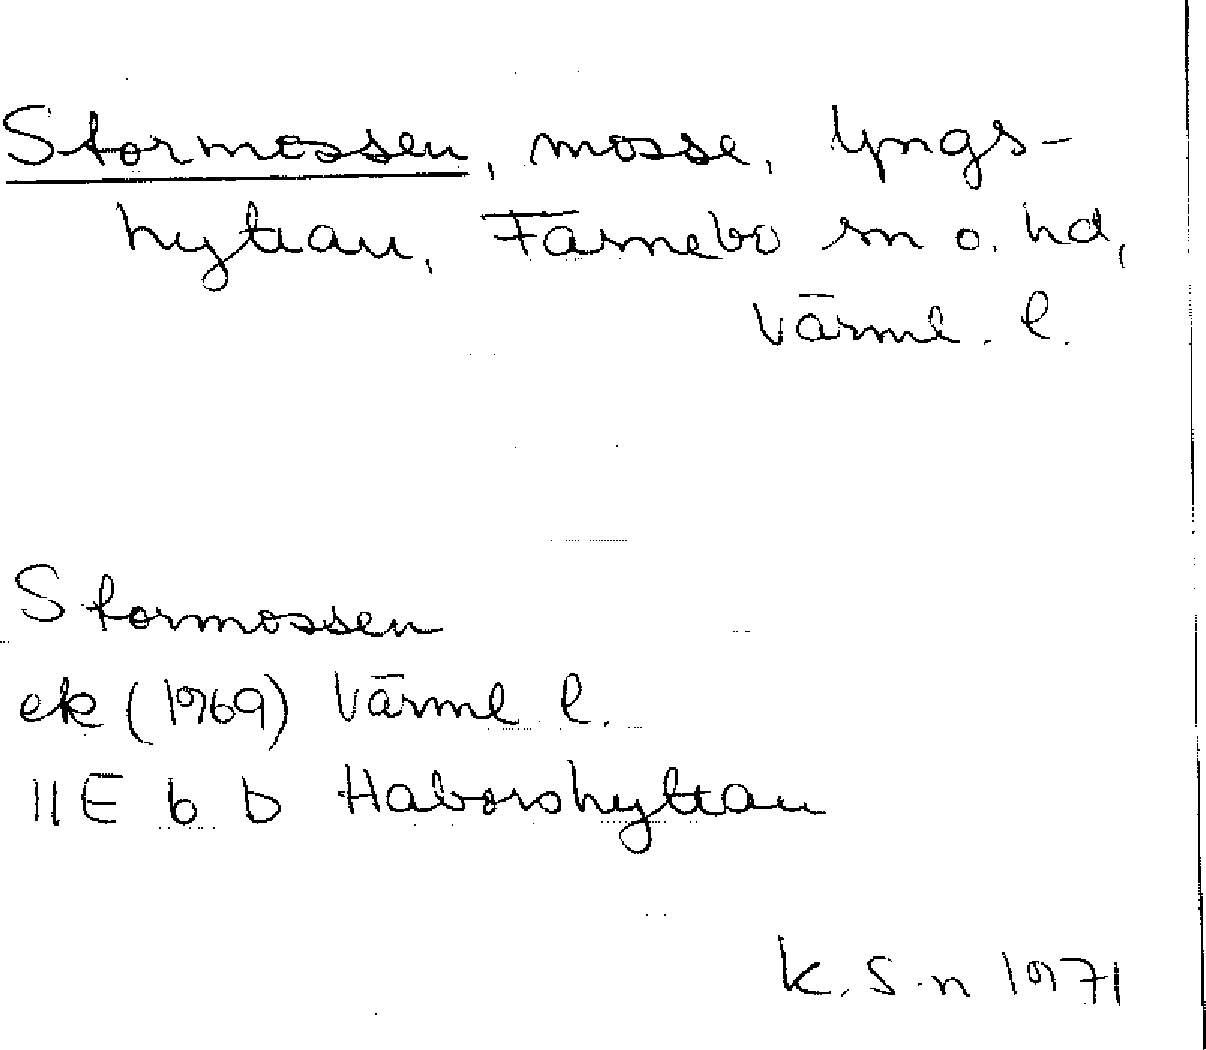 Stormossen, mosse, Yngs-
hyttan, Färnebo sn o. hd,
Värml. l.
Stormossen
ek (1969) Värml l.
11E 6 b Haborshyttan
K. S-n 1971